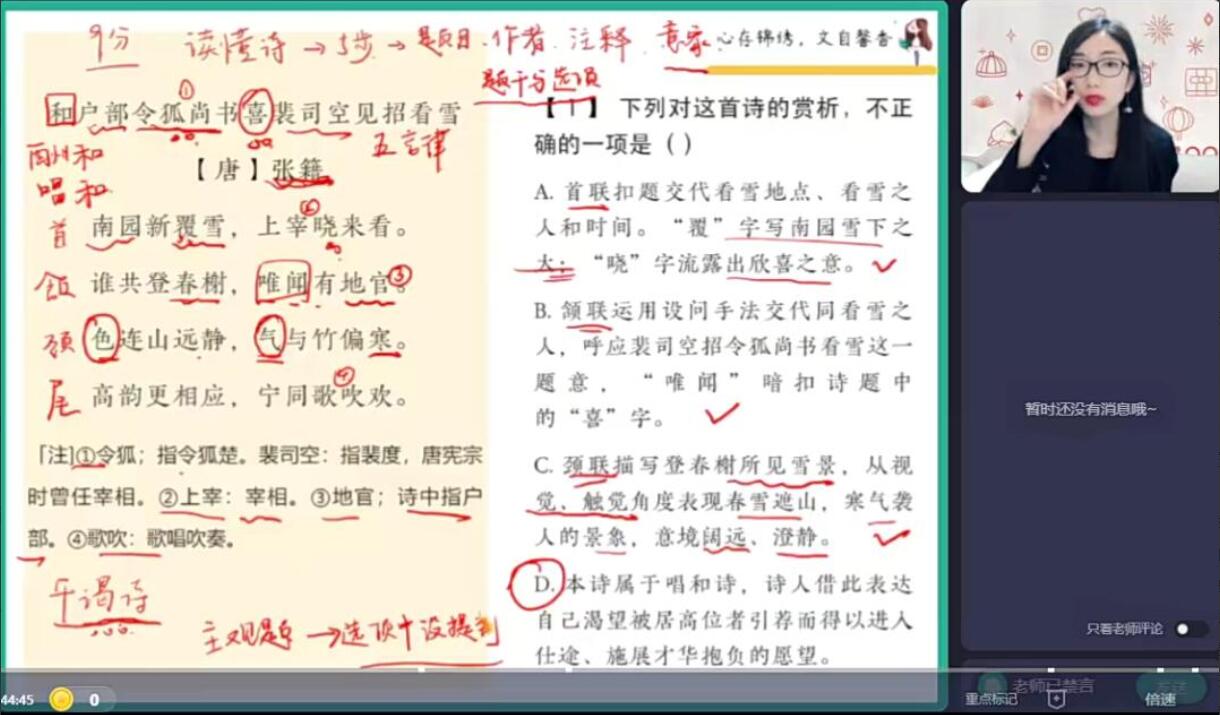 9分 读懂诗→5步→题目.作者.注释.意象
心存锦绣，文自馨香
题干分选项
和户部令狐尚书喜裴司空见招看雪
①
酬和
唱和
五言律
【唐】张籍
首 南园新覆雪，上宰晓来看。
②
颔 谁共登春榭，唯闻有地官。③
颈 色连山远静，气与竹偏寒。
尾 高韵更相应，宁同歌吹欢。
④
「注]①令狐；指令狐楚。裴司空：指裴度，唐宪宗
时曾任宰相。②上宰：宰相。③地官；诗中指户
部。④歌吹：歌唱吹奏。
干谒诗
主观题→选项+没提到
【1】 下列对这首诗的赏析，不正
确的一项是（）
A. 首联扣题交代看雪地点、看雪之
人和时间。“覆”字写南园雪下之
大；“晓”字流露出欣喜之意。
B. 颔联运用设问手法交代同看雪之
人，呼应裴司空招令狐尚书看雪这一
题意，“唯闻”暗扣诗题中
的“喜”字。
C. 颈联描写登春榭所见雪景，从视
觉、触觉角度表现春雪遮山，寒气袭
人的景象，意境阔远、澄静。
D. 本诗属于唱和诗，诗人借此表达
自己渴望被居高位者引荐而得以进入
仕途、施展才华抱负的愿望。
暂时还没有消息哦~
只看老师评论
老师已禁言
44:45
0
重点标记
倍速